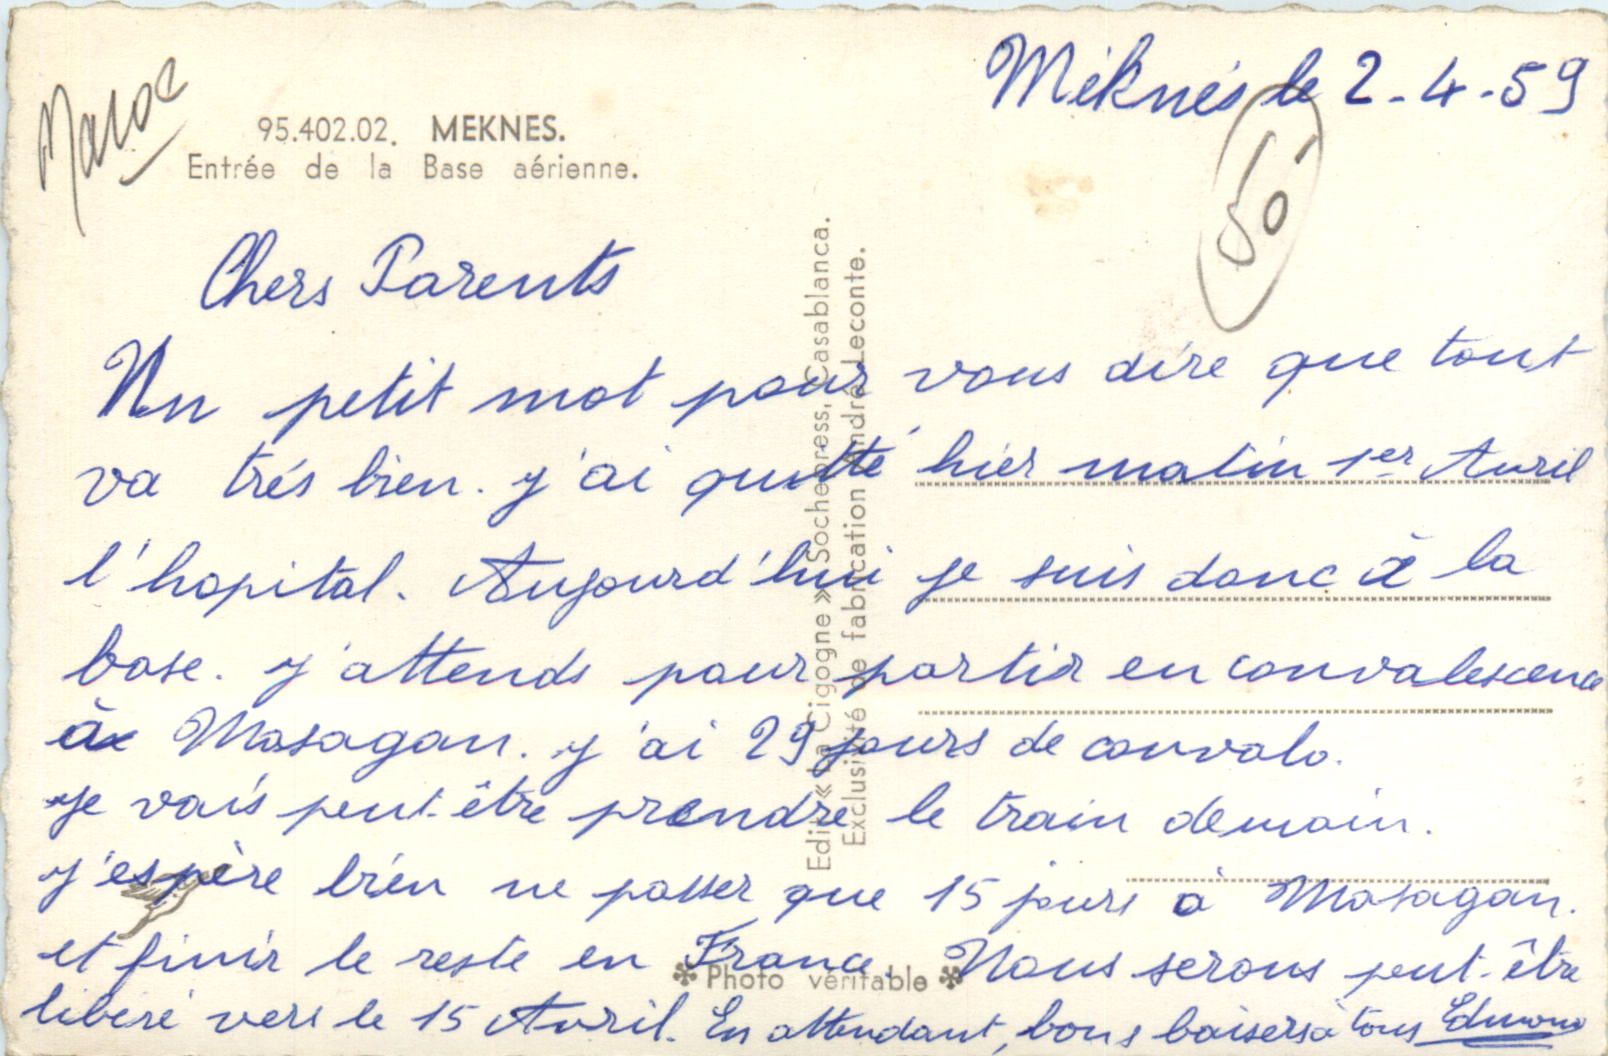 Maroc
95.402.02. MEKNES.
Entrée de la Base aérienne.
Méknés le 2-4-59
50-
Chers Parents
Un petit mot pour vous dire que tout
va trés bien. J'ai quitté hier matin 1er Avril
l'hopital. Aujourd'hui je suis donc à la
base. J'attends pour partir en convalescence
à Masagan. J'ai 29 jours de convalo.
Je vais peut-être prendre le train demain.
J'espère bien ne passer que 15 jours à Masagan.
et finir le reste en France. Nous serons peut-être
libéré vers le 15 Avril. En attendant, bons baisers à tous Edmond
Edit. « La Cigogne » Sochepress, Casablanca.
Exclusivité de fabrication André Leconte.
Photo véritable